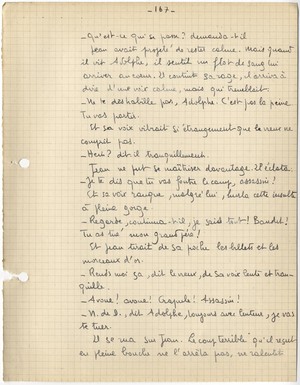 - 187 -
- Qu'est-ce qui se passe ? demanda-t-il
Jean avait projeté de rester calme. Mais quand
il vit Adolphe, il sentit un flot de sang lui
arriver au cœur. Il contint sa rage, il arriva à
dire d'une voix calme, mais qui tremblait.
- Ne te déshabille pas, Adolphe. C'est pas la peine.
Tu vas partir.
Et sa voix vibrait si étrangement que le vieux ne
comprit pas.
- Hein ? dit-il tranquillement.
Jean ne put se maîtriser davantage. Il éclata.
- Je te dis que tu vas foutre le camp, assassin !
Et sa voix rauque, malgré lui, hurla cette insulte
à pleine gorge.
- Regarde, continua-t-il, je sais tout ! Bandit !
Tu as tué mon grand père !
Et Jean tirait de sa poche les billets et les
morceaux d'or.
- Rends moi ça, dit le vieux, de sa voix lente et tran-
quille.
- Avoue ! avoue ! Crapule ! Assassin !
- N. de D., dit Adolphe, toujours avec lenteur, je vas
te tuer.
Il se rua sur Jean. Le coup terrible qu'il reçut
en pleine bouche ne l'arrêta pas, ne ralentit